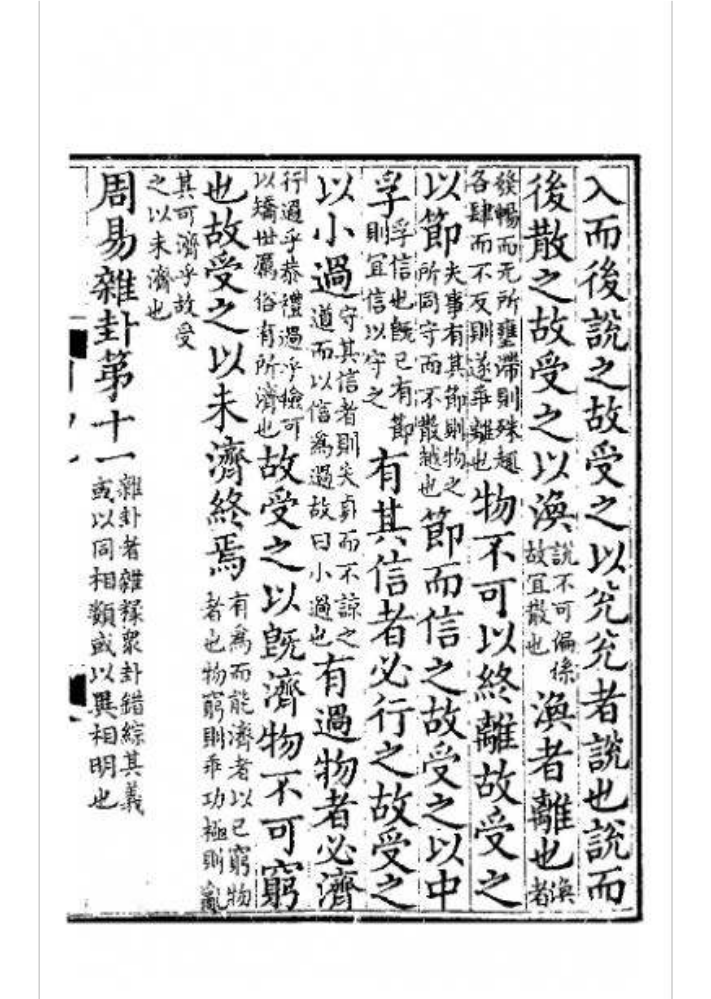 入而後說之故受之以兊兊者說也說而
後散之故受之以渙說不可偏係故宜散也渙者離也渙者
發暢而无所壅滯則殊趣各肆而不反則遂乖離也物不可以終離故受之
以節夫事有其節則物之所同守而不散越也節而信之故受之以中
孚孚信也旣已有節則宜信以守之有其信者必行之故受之
以小過守其信者則失貞而不諒之道而以信爲過故曰小過也有過物者必濟
行過乎恭禮過乎儉可以矯世厲俗有所濟也故受之以旣濟物不可窮
也故受之以未濟終焉有爲而能濟者以已窮物者也物窮則乖功極則亂
其可濟乎故受之以未濟也
周易雜卦第十一雜卦者雜糅衆卦錯綜其義或以同相類或以異相明也